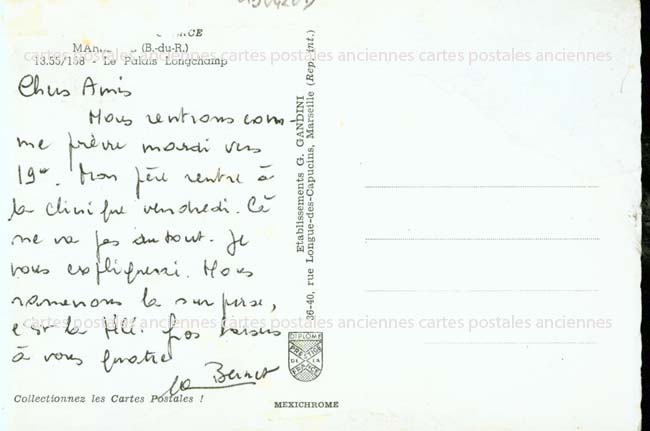 MARSEILLE (B.-du-R.)
13.55/138 - Le Palais Longchamp
cartes postales anciennes cartes postales anciennes cartes postales anciennes
Chers Amis
Nous rentrons com-
me prévu mardi vers
19h. Mon père rentre à
la clinique vendredi. Cà
ne va pas du tout. Je
vous expliquerai. Nous
ramenons la surprise,
c'est la
Gros baisers
à vous quatre
Les Bernet
cartes postales anciennes cartes postales anciennes cartes postales anciennes
Collectionnez les Cartes Postales !
Etablissements G. GANDINI
36-40, rue Longue-des-Capucins, Marseille (Rep. int.)
DIPLOME
PRESTIGE
DE LA
FRANCE
MEXICHROME